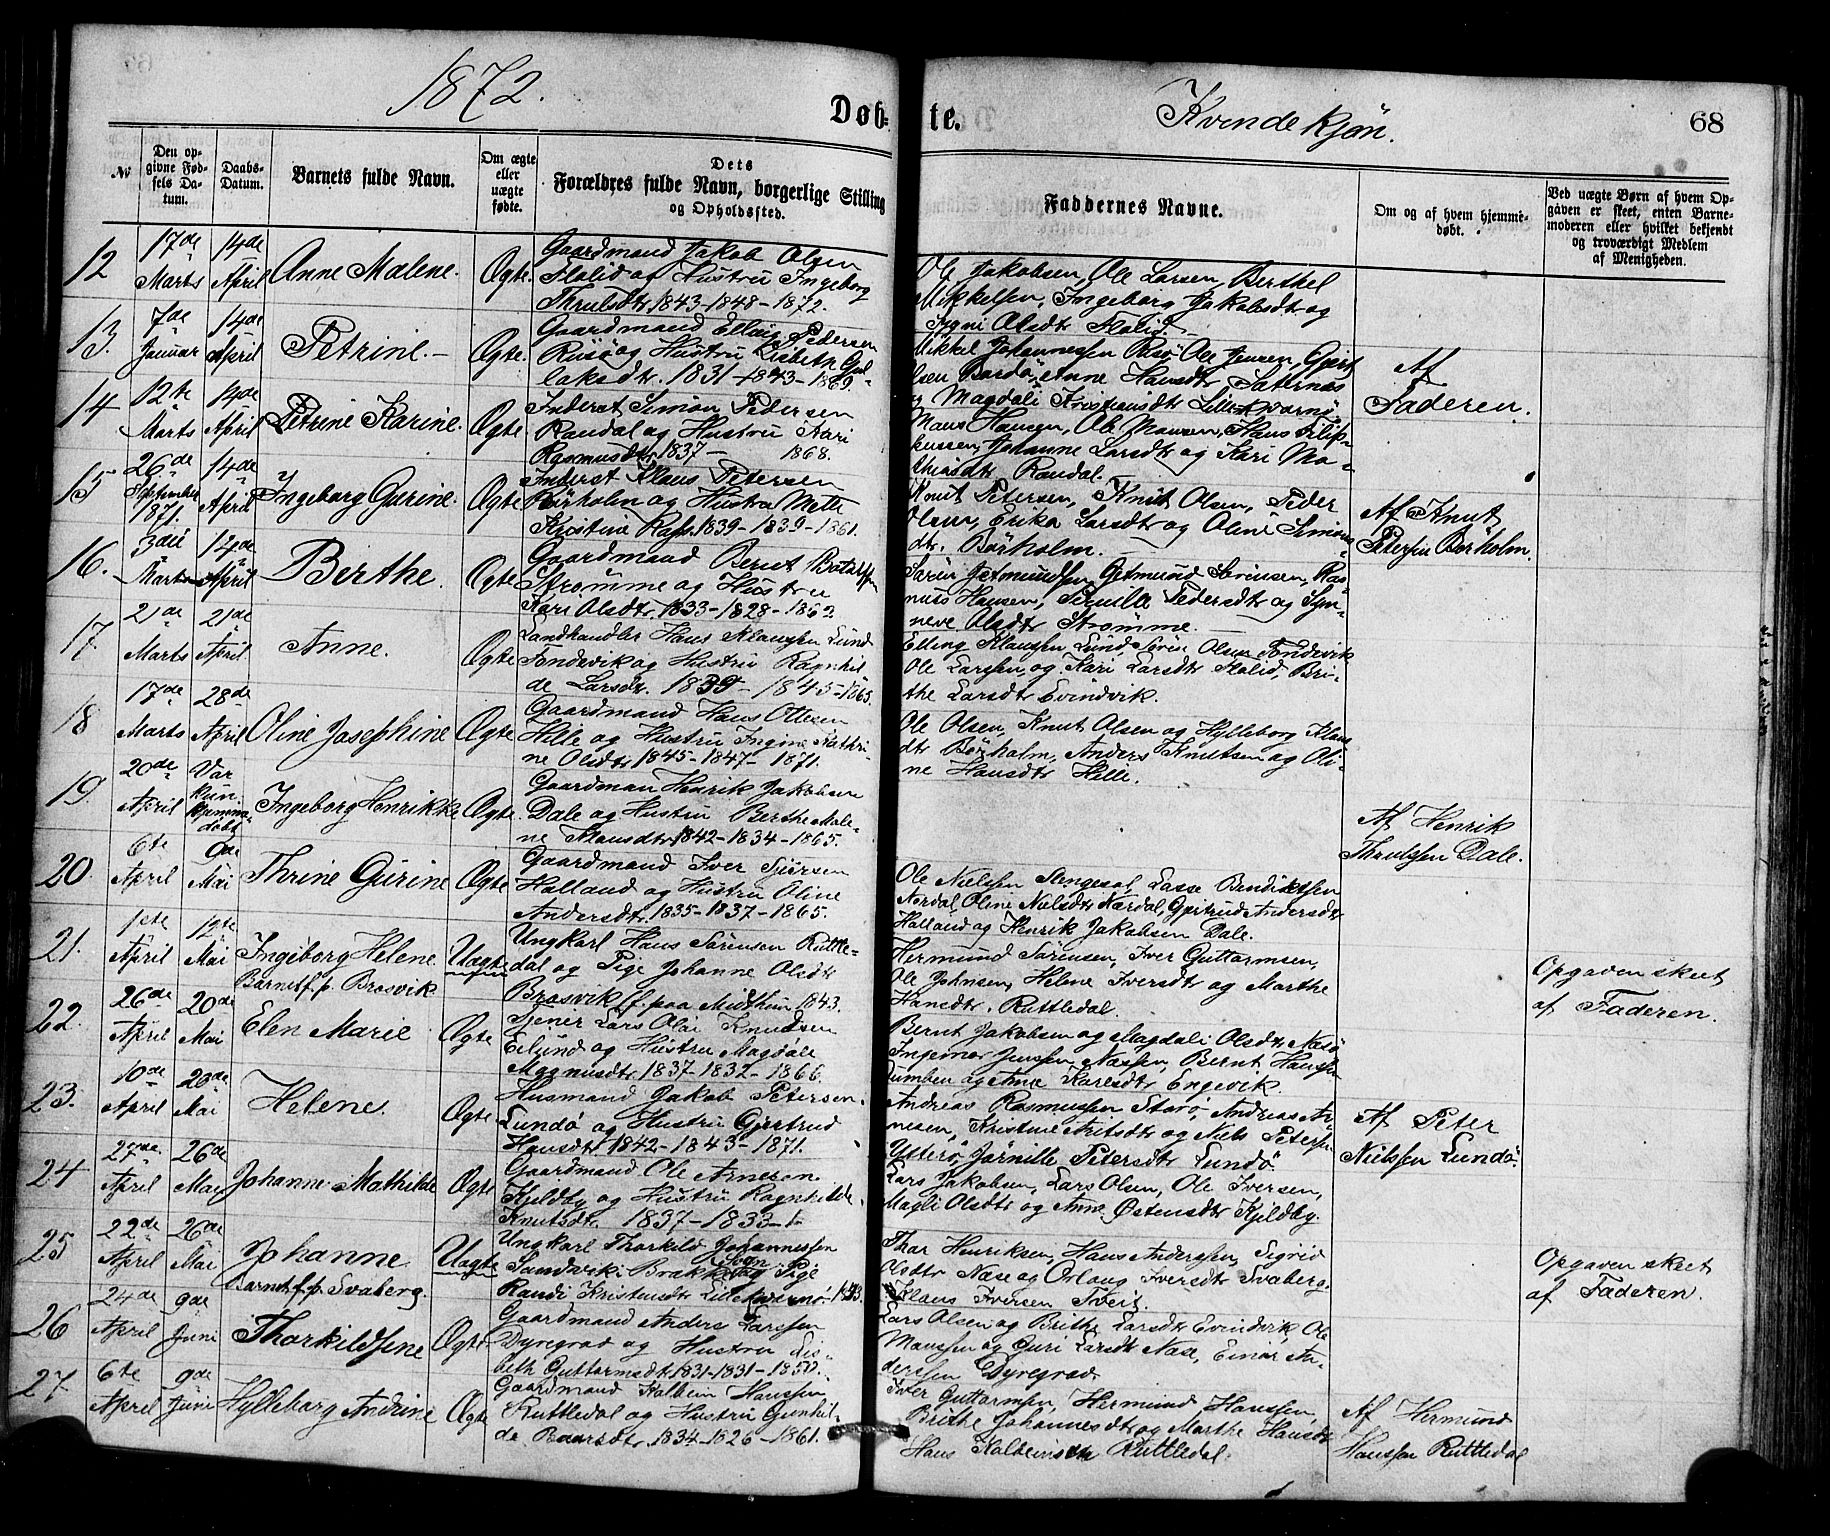 1872.
Døbte.
Kvindekjøn.
68
№
Den opgivne Fødsels Datum.
Daabs-Datum.
Barnets fulde Navn.
Om ægte eller uægte fødte.
Dets Forældres fulde Navn, borgerlige Stilling og Opholdssted.
Faddernes Navne.
Om og af hvem hjemmedøbt.
Ved uægte Børn af hvem Opgaven er skeet, enten Barnemoderen eller hvilket bekjendt og troværdigt Medlem af Menigheden.
12
17de Marts
14de April
Anne Malene.
Ægte.
Gaardmand Jakob Olsen
Flolid og Hustru Ingeborg
Thrulsdtr. 1843-1848-1872.
Ole Jakobsen, Ole Larsen, Berthel
Mikkelsen, Ingeborg Jakobsdtr og
Olsdtr Flolid.
13.
7de Januar
14de April
Petrine.
Ægte.
Gaardmand Elling Pedersen
Risø og Hustru Lisbeth Gul-
laksdtr. 1831-1843-1869.
Mikkel Johannessen Risø, Ole Jensen,
Bardø, Anne Hansdtr Sæternæs
og Magdali Kristiansdtr Lillekvarnø.
Af
Faderen.
14
12te Marts
14de April
Petrine Karine.
Ægte.
Inderst Simon Pedersen
Randal og Hustru Kari
Rasmusdtr 1837- 1868.
Mans Hansen, Ole Monsen, Hans Filip-
pussen, Johanne Larsdtr og Kari Ma-
thiasdtr Randal.
15
26de September 1871.
14de April
Ingeborg Gurine.
Ægte
Inderst Klaus Petersen
Börholm og Hustru Mette
Kristine Rasd. 1839-1839-1861.
Knut Petersen, Knut Olsen, Peder
Olsen, Erika Larsdtr og Oline Simons-
dtr. Börholm.
Af Knut
Petersen Börholm.
16.
3die Marts
12de April
Berthe.
Ægte
Gaardmand Bernt Botolfsen
Strømme og Hustru
Kari Olsdtr. 1833-1828-1862
Sørin Jetmundsen, Getmund Sørensen, Ras-
mus Hansen, Pernille Pedersdtr og Syn-
neve Olsdtr Strømme.
17.
21de Marts
21de April
Anne.
Ægte
Landhandler Hans Klaussen Lund
Fondevik og Hustru Ragnhil-
de Larsdr. 1839-1845-1865.
Elling Klaussen Lund, Sørin Olsen Fondevik
Ole Larssen og Kari Larsdtr Flolid, Bri-
the Larsdtr Evindvik.
18
17de Marts
28de April
Oline Josephine
Ægte
Gaardmand Hans Ottesen
Hille og Hustru Ingine Kathri-
ne Olsdtr 1845-1847-1871.
Ole Olsen, Knut Olsen og Hylleborg Klaus-
dtr Børholm, Anders Knutsen og Oli-
ne Hansdtr Hille.
19.
20de April
Var kun hjemme-døbt
Ingeborg Henrikke
Ægte.
Gaardman Henrik Jakobsen
Dale og Hustru Berthe Male-
ne Mansdtr 1842-1834-1865.
Af Henrik
Thrulsen Dale.
20
6te April
9de Mai
Thrine Gurine
Ægte
Gaardmand Iver Sjørsen
Halland og Hustru Oline
Andersdtr. 1835-1837-1865.
Ole Nielsen Stengesol, Lasse Bendiktsen
Nordal, Oline Nielsdtr Nærdal, Gjertrud Andersdtr
Halland og Henrik Jakobsen Dale.
21.
1ste April
12te Mai
Ingeborg Helene
Barnet f.p. Brosvik
Uægte
Ungkarl Hans Sørensen Ruttle-
dal og Pige Johanne Olsdtr
Brosvik f. paa Midthun 1843.
Hermund Sørensen, Iver Guttormsen,
Ole Johnsen, Helene Iversdtr og Marthe
Hansdtr. Ruttledal.
Opgaven skeet
af Faderen.
22.
26de April
20de Mai
Elen Marie
Ægte
Tjener Lars Olai Knudsen
Eilund og Hustru Magdale
Magnusdtr. 1837-1832-1866.
Bernt Jakobsen og Magdali Olsdtr Næsø
Ingemar Jenssen Næssen, Bernt Hanssen
og Anne Karlsdtr Engevik.
23.
10de April
20de Mai
Helene.
Ægte
Husmand Jakob Petersen
Lundø og Hustru Gjertrud
Hansdtr 1842-1843-1871.
Andreas Rasmussen Storø, Andreas Ar-
nesen, Kristine Antsdtr og Niels Peterse
Ytterø, Jørnille Petersdtr Lundø.
Af Peter
Nielssen Lundø.
24
27de April
26de Mai
Johanne Mathilde
Ægte
Gaardmand Ole Arnesen
Kjeldby og Hustru Ragnhilde
Knutsdtr 1837-1833-
Lars Jakobsen, Lars Olsen, Ole Iversen,
Magli Olsdtr og Anne Østensdtr Kjeldby.
25
22de April
26de Mai
Johanne
Barnet f.p. Svaberg.
Uægte
Ungkarl Thorkild Johannessen
Sandvik i Brække Sogn og Pige
Randi Kristensdtr Lillekvarnø. 1843.
Thor Henriksen, Hans Anderssen, Sigrid
Olsdtr Næse og Orlaug Iversdtr Svaberg.
Klaus Iversen Tveit.
Opgaven skeet
af Faderen.
26
24de April
9de Juni
Thorkildsine
Ægte
Gaardmand Anders Larssen
Dyregrad og Hustru Lis-
beth Guttormsdtr 1831-1831-1850.
Lars Olsen og Brithe Larsdtr Evindvik, Ole
Manssen og Guri Larsdtr Næse, Einar An-
derssen Dyregrad.
27.
6te April
9de Juni
Hylleborg Andrine
Ægte
Gaardmand Kolbein Hanssen
Ruttledal og Hustru Gunhil-
de Baarsdtr. 1834-1826-1861.
Iver Guttormsen, Hermund Hanssen,
Brithe Johannesdtr og Marthe Hansdtr
Hans Kolbeinsen Ruttledal.
Af Hermund
Hanssen Ruttledal